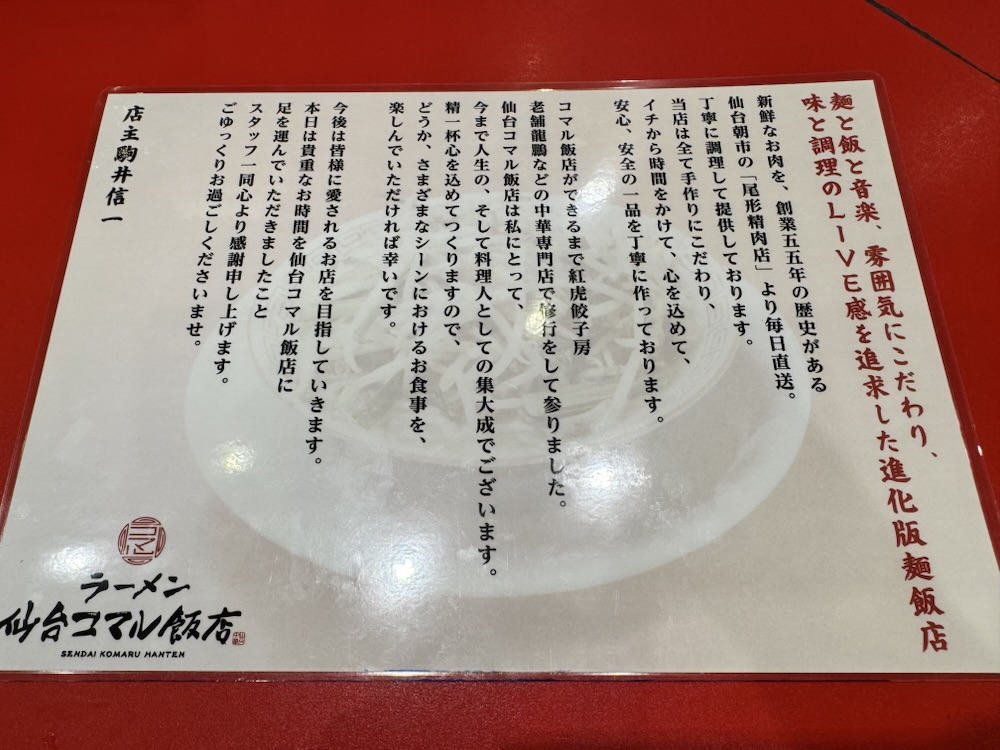 麺と飯と音楽、雰囲気にこだわり、
味と調理のLIVE感を追求した進化版麺飯店
新鮮なお肉を、創業五五年の歴史がある
仙台朝市の「尾形精肉店」より毎日直送。
丁寧に調理して提供しております。
当店は全て手作りにこだわり、
イチから時間をかけて、心を込めて、
安心、安全の一品を丁寧に作っております。
コマル飯店ができるまで紅虎餃子房
老舗龍鵬などの中華専門店で修行をして参りました。
仙台コマル飯店は私にとって、
今まで人生の、そして料理人としての集大成でございます。
精一杯心を込めてつくりますので、
どうか、さまざまなシーンにおけるお食事を、
楽しんでいただければ幸いです。
今後は皆様に愛されるお店を目指していきます。
本日は貴重なお時間を仙台コマル飯店に
足を運んでいただきましたこと
スタッフ一同心より感謝申し上げます。
ごゆっくりお過ごしくださいませ。
店主 駒井信一
コマル
ラーメン
仙台コマル飯店
SENDAI KOMARU HANTEN